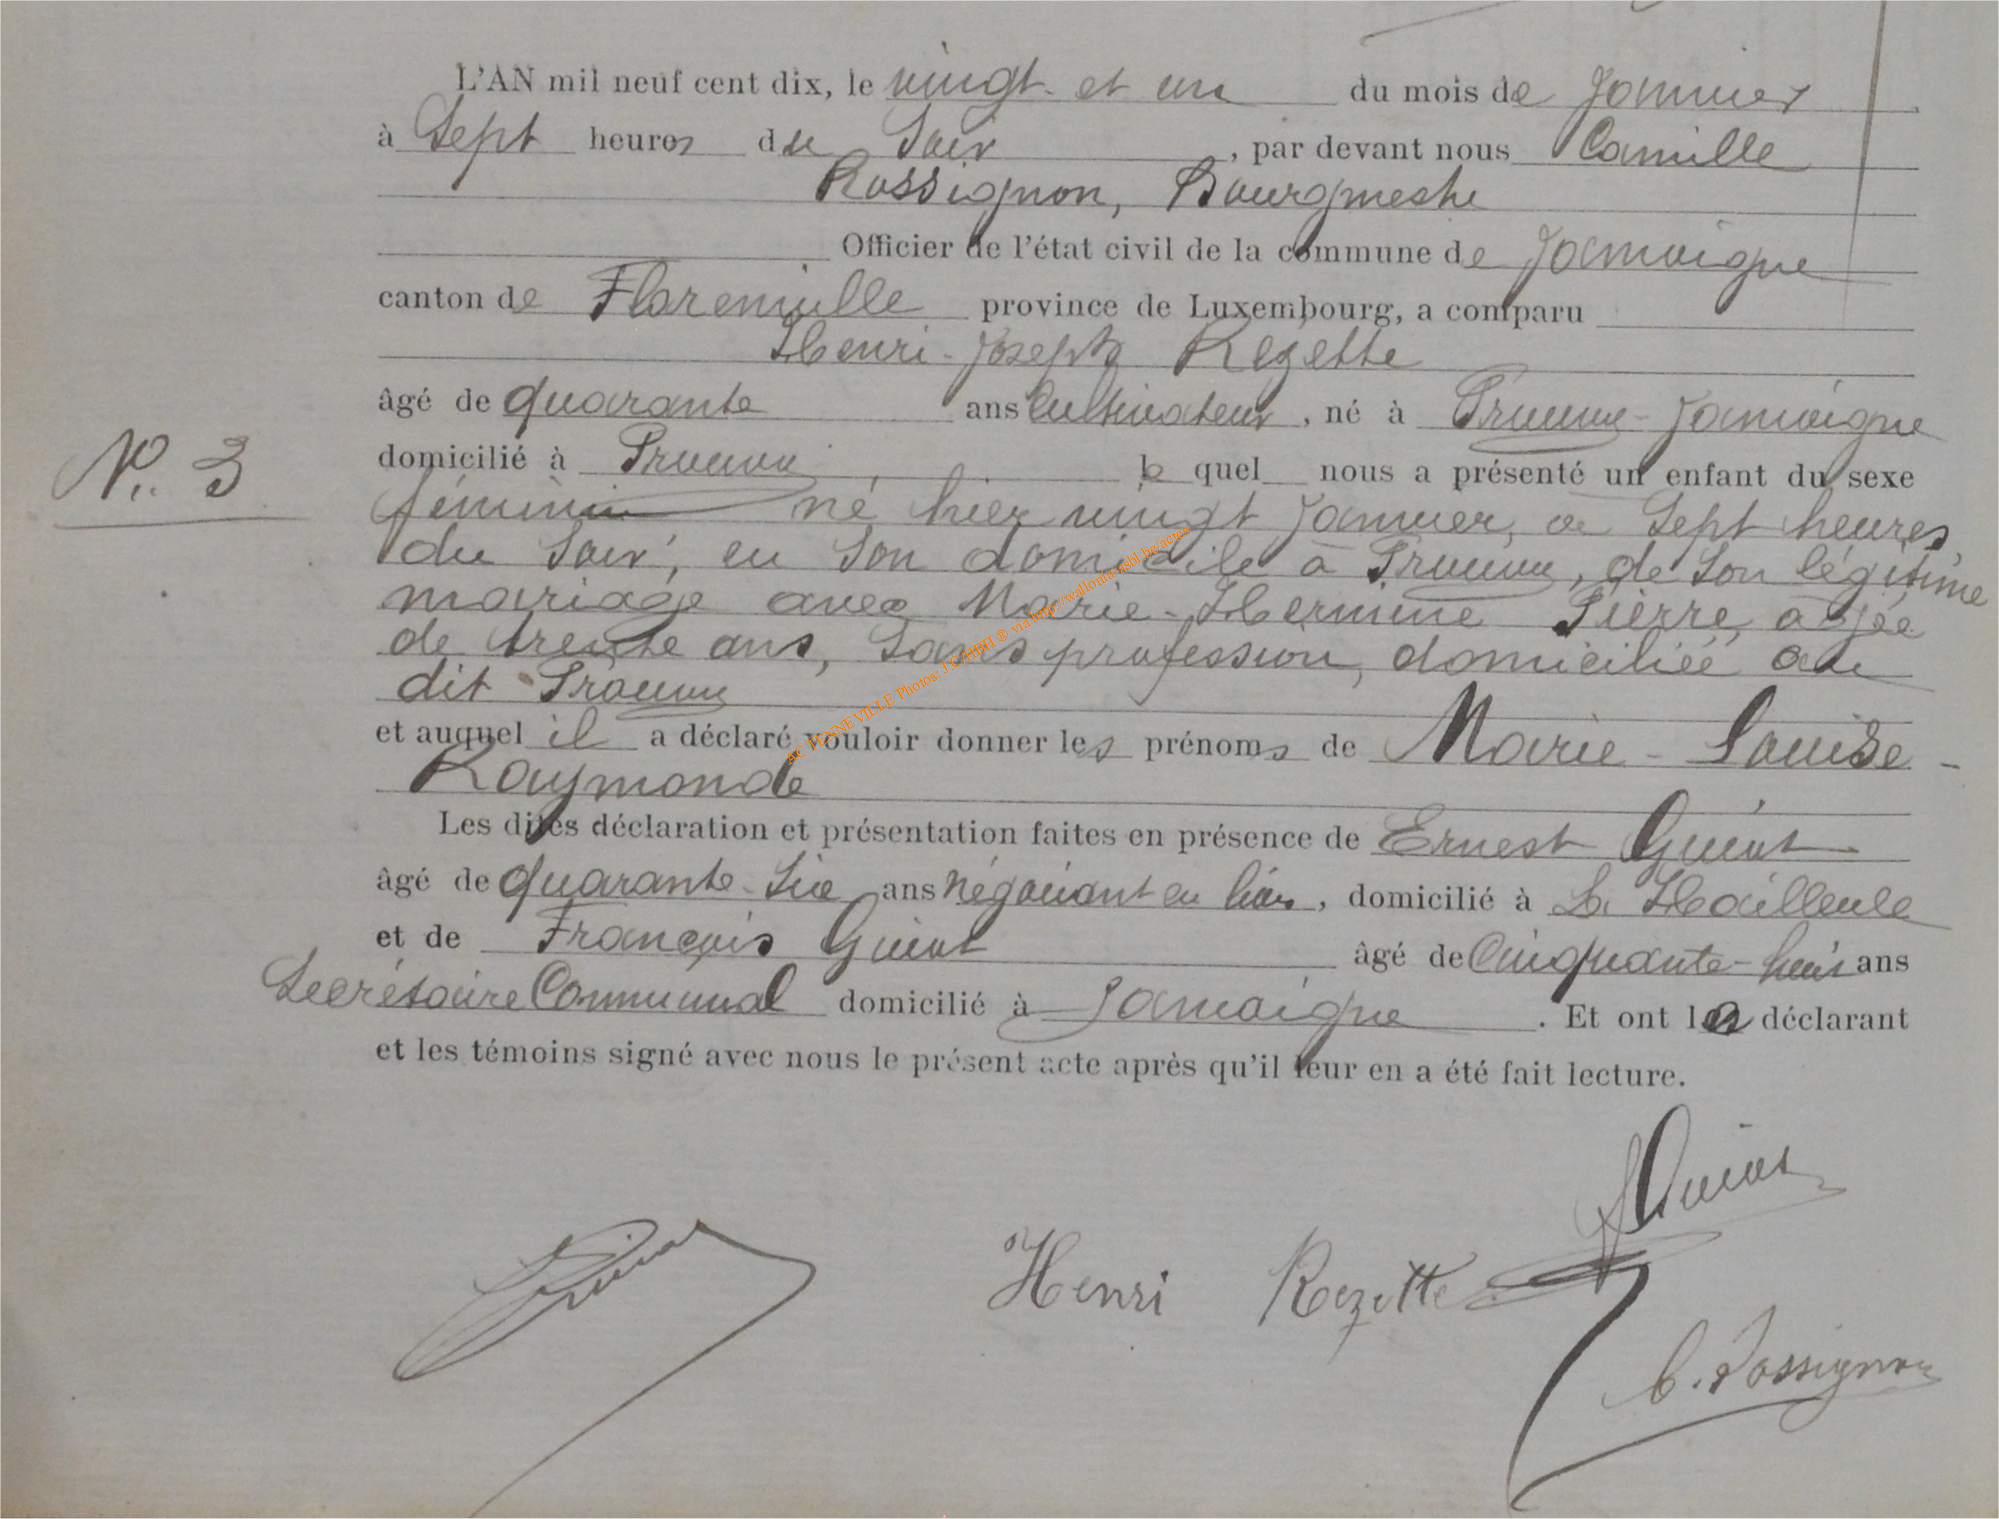 L'AN mil neuf cent dix, le vingt et un du mois de Janvier
à Sept heures du Soir, par devant nous Camille
Rossignon, Bourgmestre
Officier de l'état civil de la commune de Jamoigne
canton de Florenville province de Luxembourg, a comparu
Henri-Joseph Rezette
âgé de quarante ans Cultivateur, né à Prouvy-Jamoigne
N°. 3
domicilié à Prouvy le quel nous a présenté un enfant du sexe
féminin né hier vingt Janvier, à Sept heures
du Soir, en Son domicile à Prouvy, de Son légitime
mariage avec Marie-Hermine Pierre, agée
de trente ans, Sans profession, domiciliée au
dit Prouvy
et auquel il a déclaré vouloir donner les prénoms de Marie-Louise-
Raymonde
Les dites déclaration et présentation faites en présence de Ernest Guiot
âgé de quarante-Six ans négociant en, domicilié à
et de François Guiot âgé de Cinquante-huit ans
Secrétaire Communal domicilié à Jamoigne. Et ont le déclarant
et les témoins signé avec nous le présent acte après qu'il leur en a été fait lecture.
Guiot
Guiot
Henri Rezette
C. Rossignon